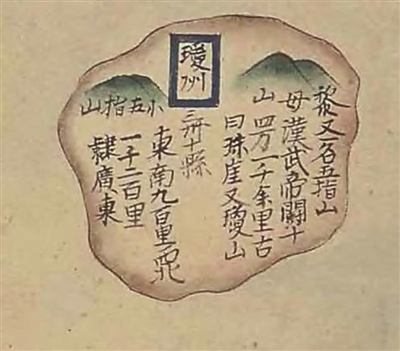 黎母山
又名五指山
漢武帝闢土
四方一千余里古
曰珠崖又瓊山
瓊州
三州十縣
小五指山
東南九百里西北
一千二百里
隸廣東